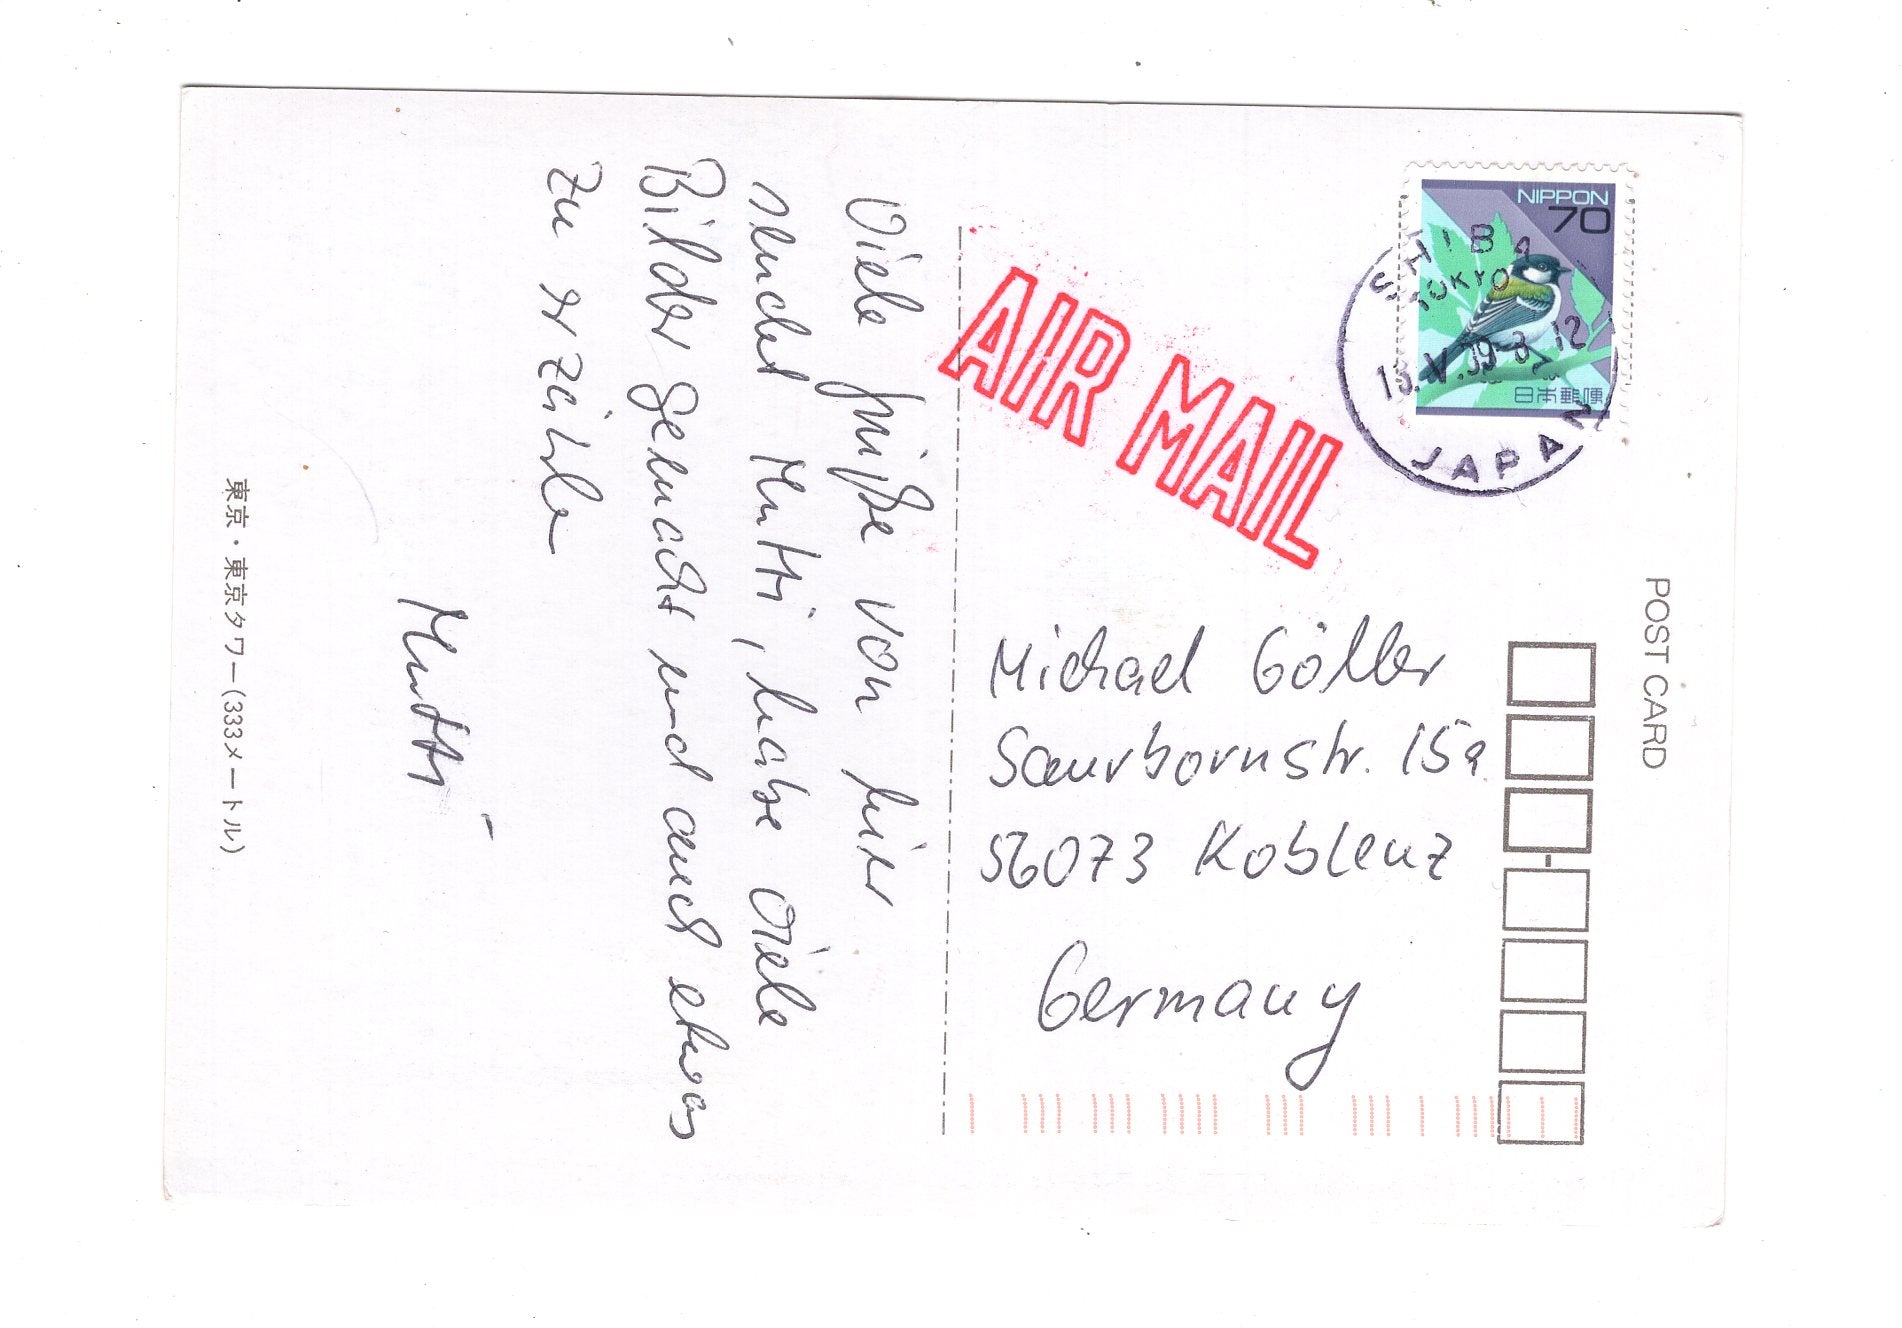 Viele Grüße von hier
sendet Mutti, habe viele
Bilder gemacht und auch etwas
zu erzählen
Mutti
東京・東京タワー(333メートル)
AIR MAIL
NIPPON
70
日本郵便
SHIBA
TOKYO
JAPAN
POST CARD
Michael Göller
Saurbornstr. 15a
56073 Koblenz
Germany